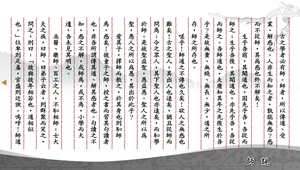 古之學者必有師。師者,所以傳道、受
業、解惑也。人非生而知之者,孰能無惑?惑
而不從師,其為惑也終不解矣!
生乎吾前,其聞道也,固先乎吾,吾從
而師之;生乎吾後,其聞道也,亦先乎吾,吾從
而師之。吾師道也,夫庸知其年之先後生於吾
乎?是故無貴、無賤、無長、無少,道之所
存,師之所存也。
嗟乎!師道之不傳也久矣!欲人之無惑也
難矣!古之聖人,其出人也遠矣,猶且從師而
問焉;今之眾人,其下聖人也亦遠矣,而恥學
於師。是故聖益聖,愚益愚。聖人之所以為
聖,愚人之所以為愚,其皆出於此乎?
愛其子,擇師而教之;於其身也則恥師
焉,惑矣!彼童子之師,授之書而習其句讀者
也,非吾所謂傳其道、解其惑者也。句讀之不
知,惑之不解,或師焉,或不焉,小學而大
遺,吾未見其明也。
巫、醫、樂師、百工之人,不恥相師;士大
夫之族,曰師、曰弟子云者,則群聚而笑之。
問之,則曰:「彼與彼年相若也,道相似
也。」位卑則足羞,官盛則近諛。嗚呼!師道
師說